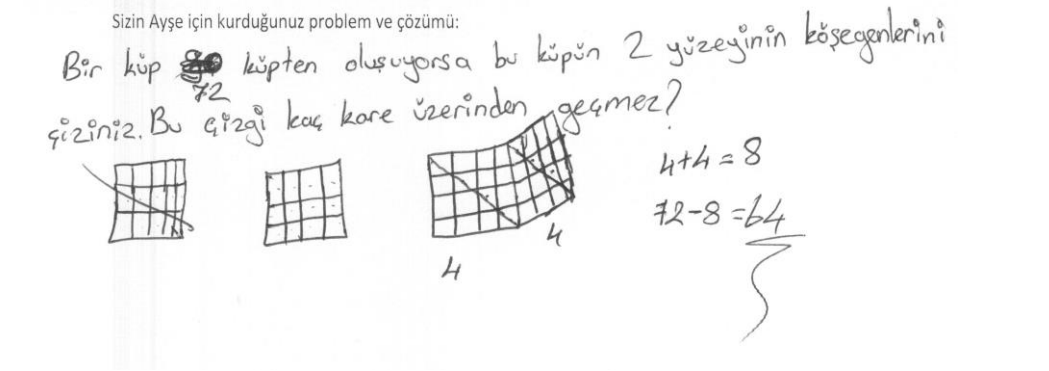 Sizin Ayşe için kurduğunuz problem ve çözümü:
Bir küp küpten oluşuyorsa bu küpün 2 yüzeyinin köşegenlerini
72
çiziniz. Bu çizgi kaç kare üzerinden geçmez?
4+4=8
72-8=64
4
4